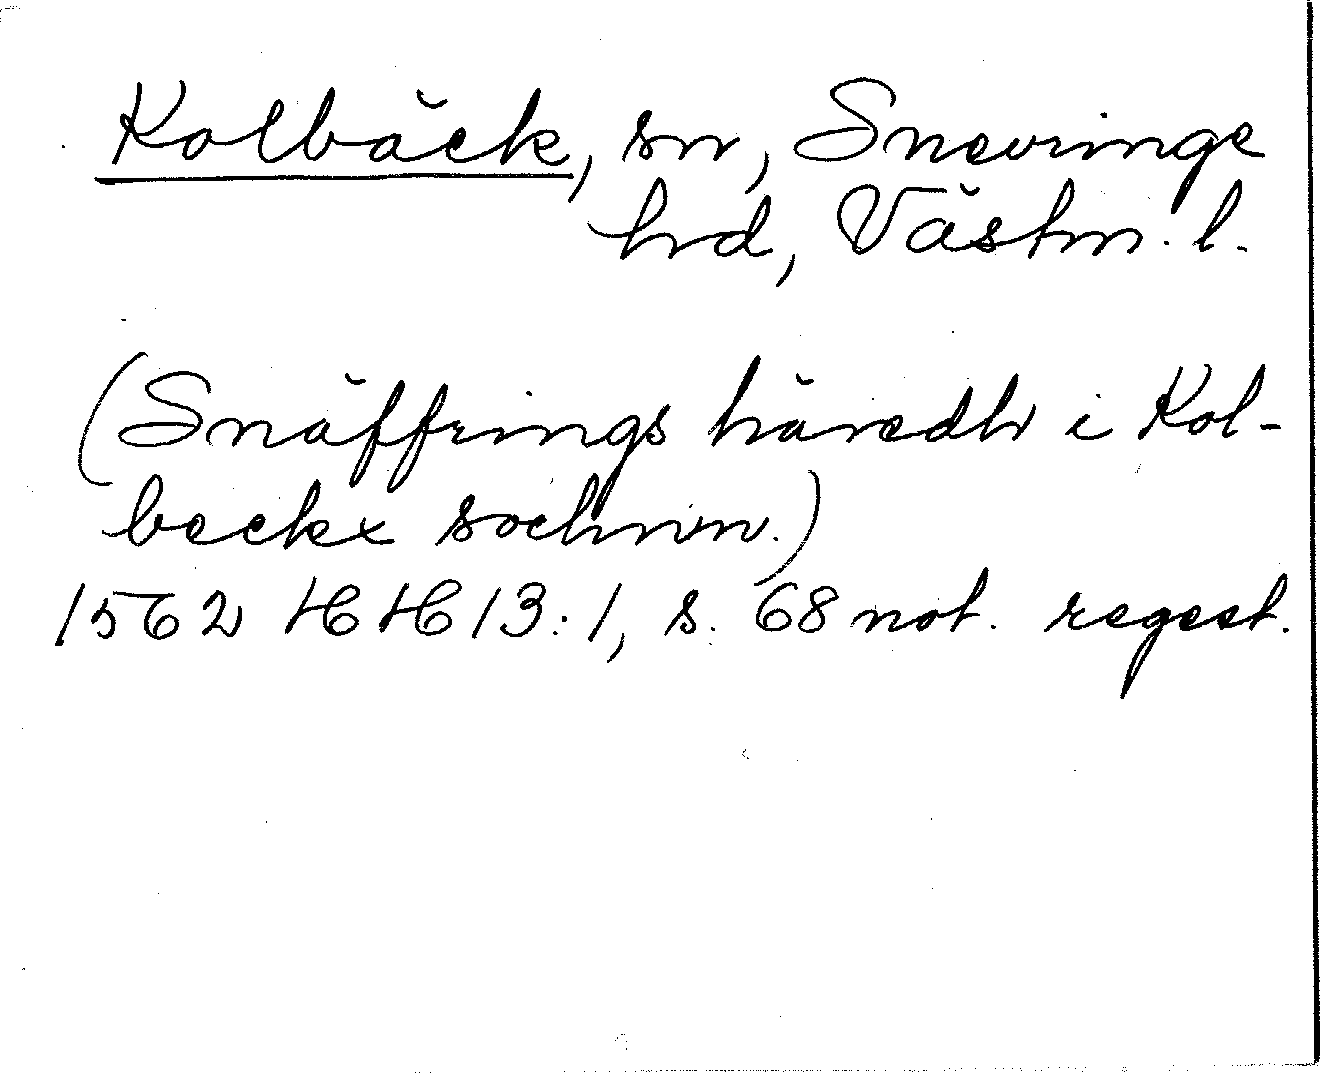 Kolbäck, sn, Snevringe
hrd, Västm. l.
(Snäffrings häredh i Kol-
beckx sochnnn.)
1562 HH 13:1, s. 68 not. regest.